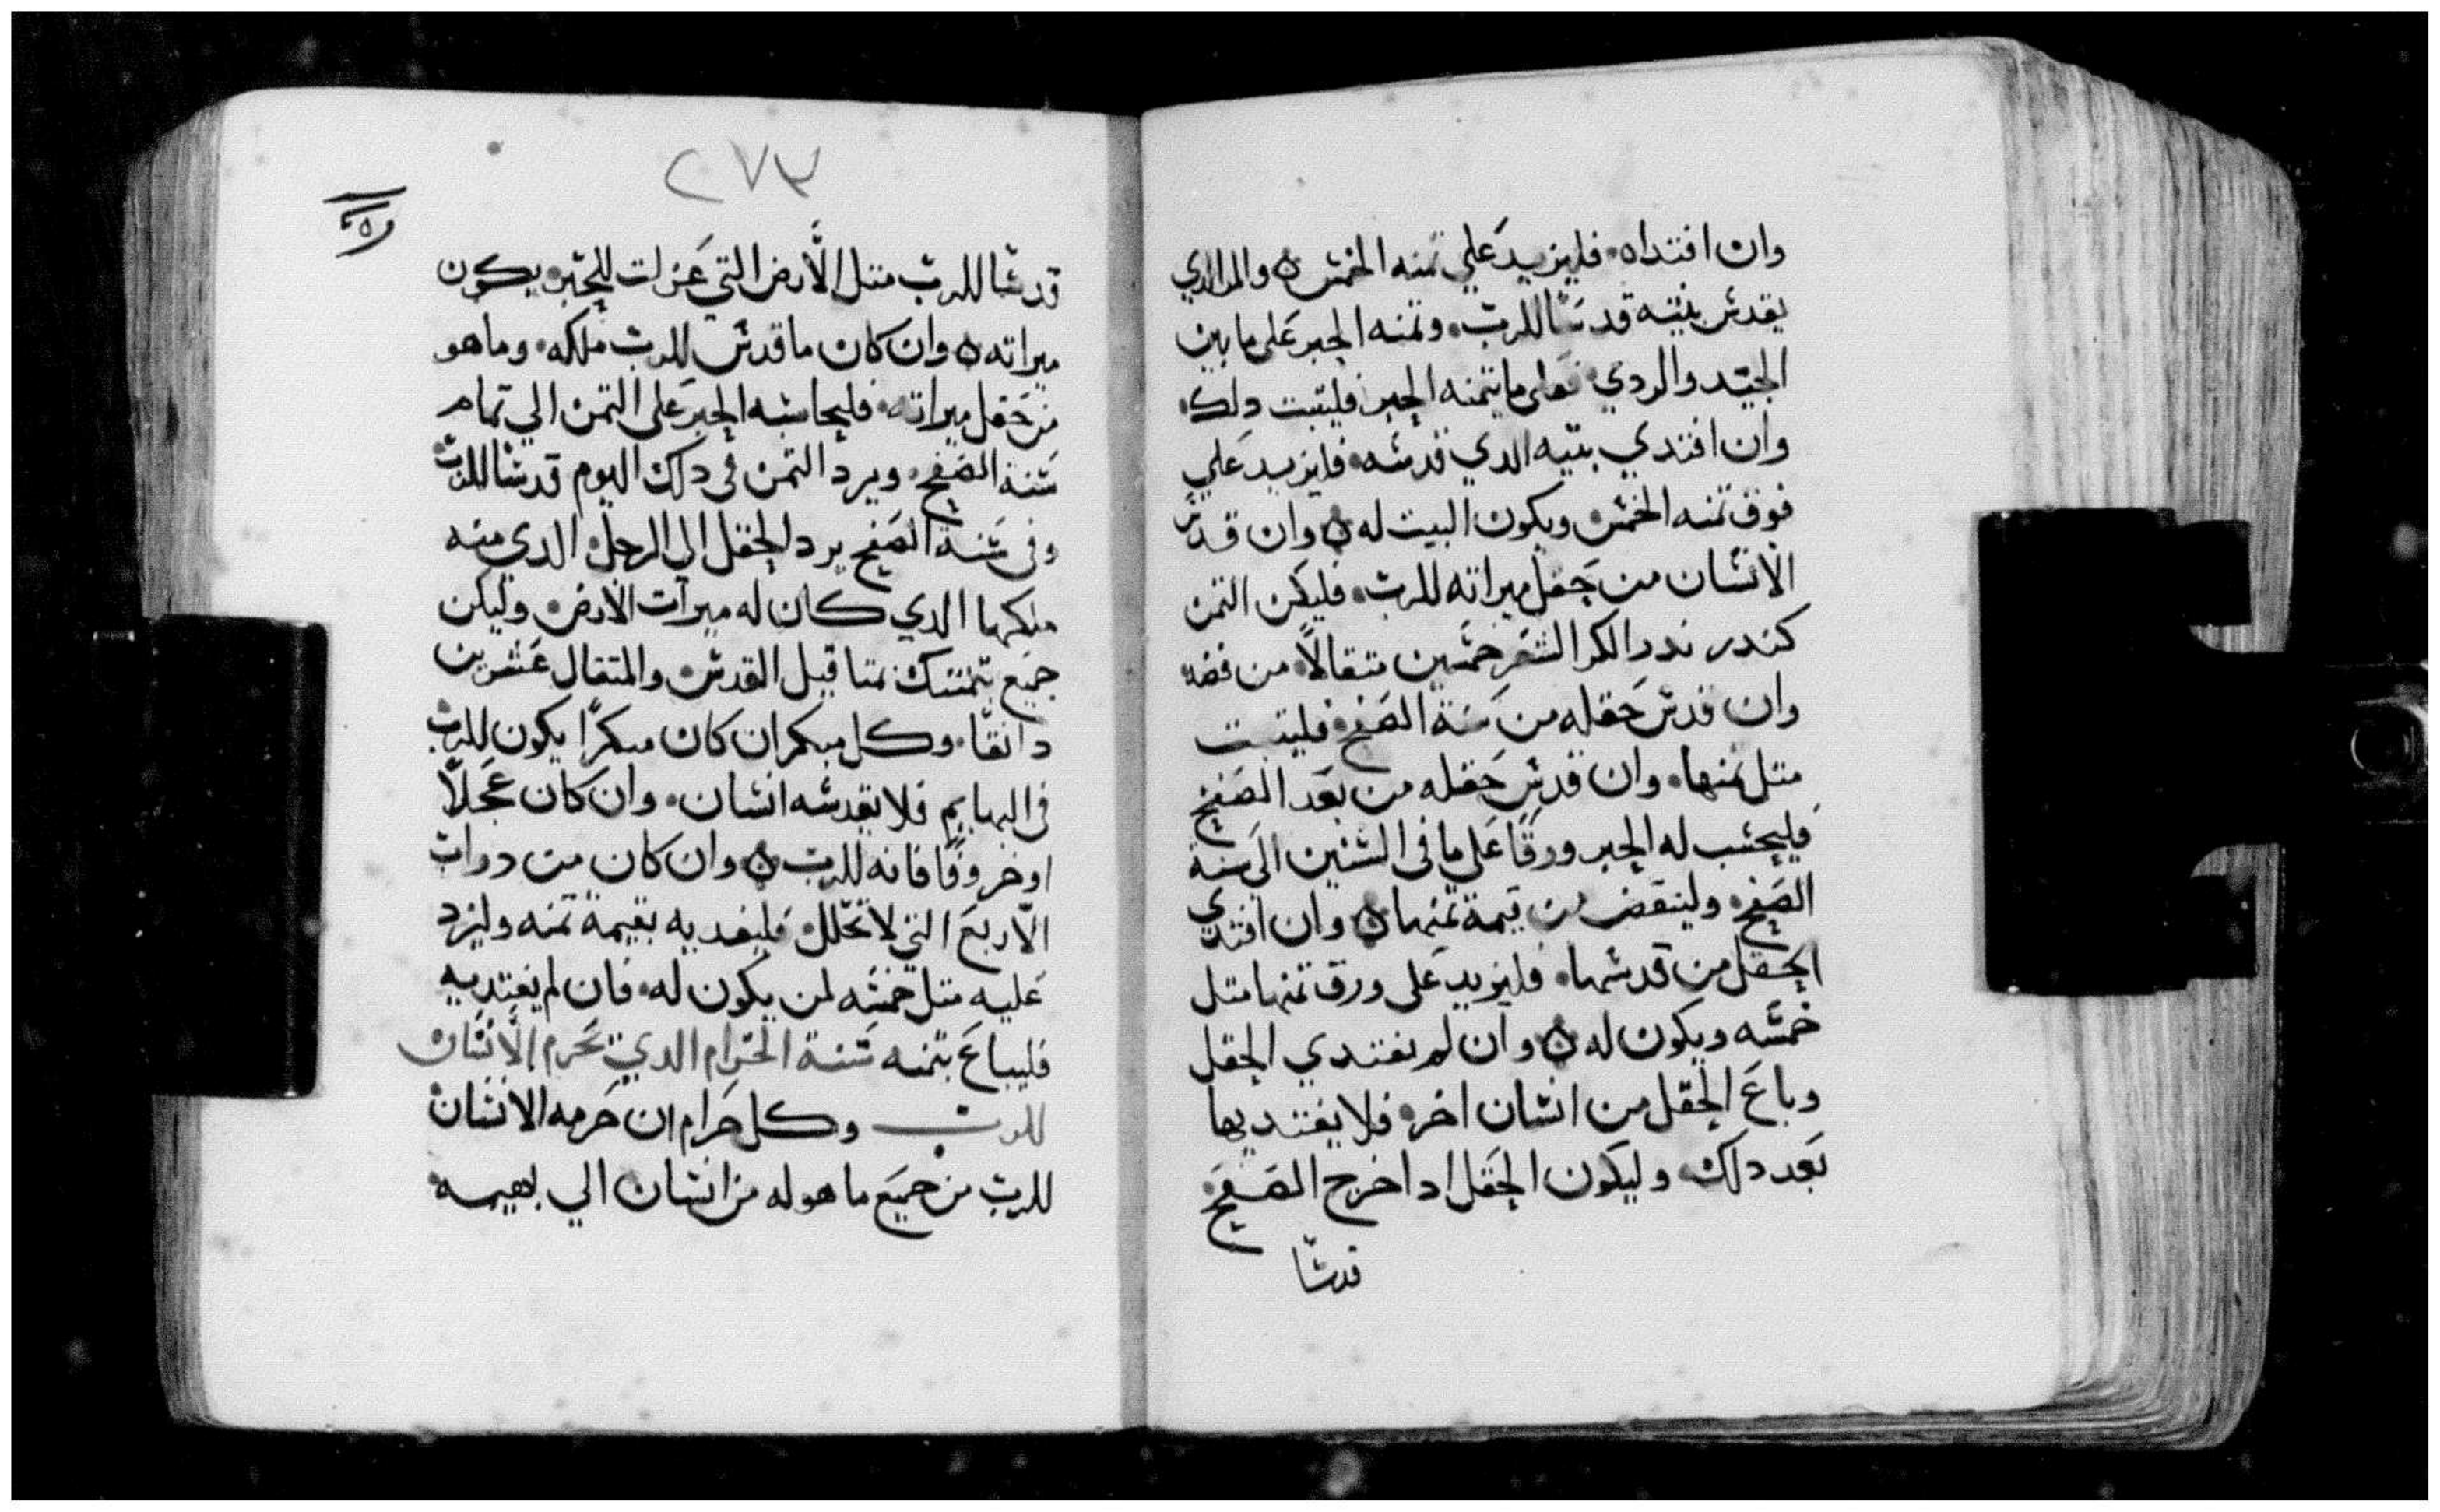 وان افتداه۰ فليزيد علي تمنه الخمس ه والمر الدي
يقدس بيته قدسًا للرب۰ وتمنه الحبر على ما بين
الجيد والردي۰ فعلى ما يتمنه الحبر فليتبت دلك
وان افتدي بيته الدي قدسه۰ فليزيد علي
فوق تمنه الخمس ويكون البيت له ه وان قدس
الانسان من حقل ميراته للرب۰ فليكن التمن
كندر ندر الكر الشعر خمسين متقالاً من فضه
وان قدس حقله من سنة الصفح۰ فليتبت
متل تمنها۰ وان قدس حقله من بعد الصفح
فليحسب له الحبر ورقًا على ما في السنين الى سنة
الصفح۰ ولينقض من قيمة تمنها ه وان افتدي
الحقل من قدسها۰ فليزيد على ورق تمنها متل
خمسه ويكون له ه وان لم يفتدي الحقل
وباع الحقل من انسان اخر۰ فلا يفتديها
بعد دلك۰ وليكون الحقل ادا خرج الصفح۰
قدسًا
٢٧٣
قدسًا للرب متل الأرض التي عزلت للحبر۰ يكون
ميراته ه وان كان ما قدس للرب ملكه۰ وما هو
من حقل ميراته۰ فليحاسبه الحبر على التمن الي تمام
سنة الصفح۰ ويرد التمن في دلك اليوم قدسًا للرب
وفي سنة الصفح يرد الحقل الى الرجل الدي منه
ملكها الدي كان له ميرات الارض۰ وليكن
جميع تمنك بمتاقيل القدس والمتقال عشرين
دانقًا۰ وكل مبكر ان كان مبكرًا يكون للرب
في البهايم فلا يقدسه انسان۰ وان كان عجلاً
او خروفًا فانه للرب ه وان كان من دواب
الأربع التي لا تحلل۰ فليفديه بقيمة تمنه وليزد
عليه متل خمسه لمن يكون له۰ فان لم يفتديه
فليباع بتمنه سنة الحرام الدي يحرم الأنسان
للرب وكل حرام ان حرمه الانسان
للرب من جميع ما هو له من انسان الي بهيمه